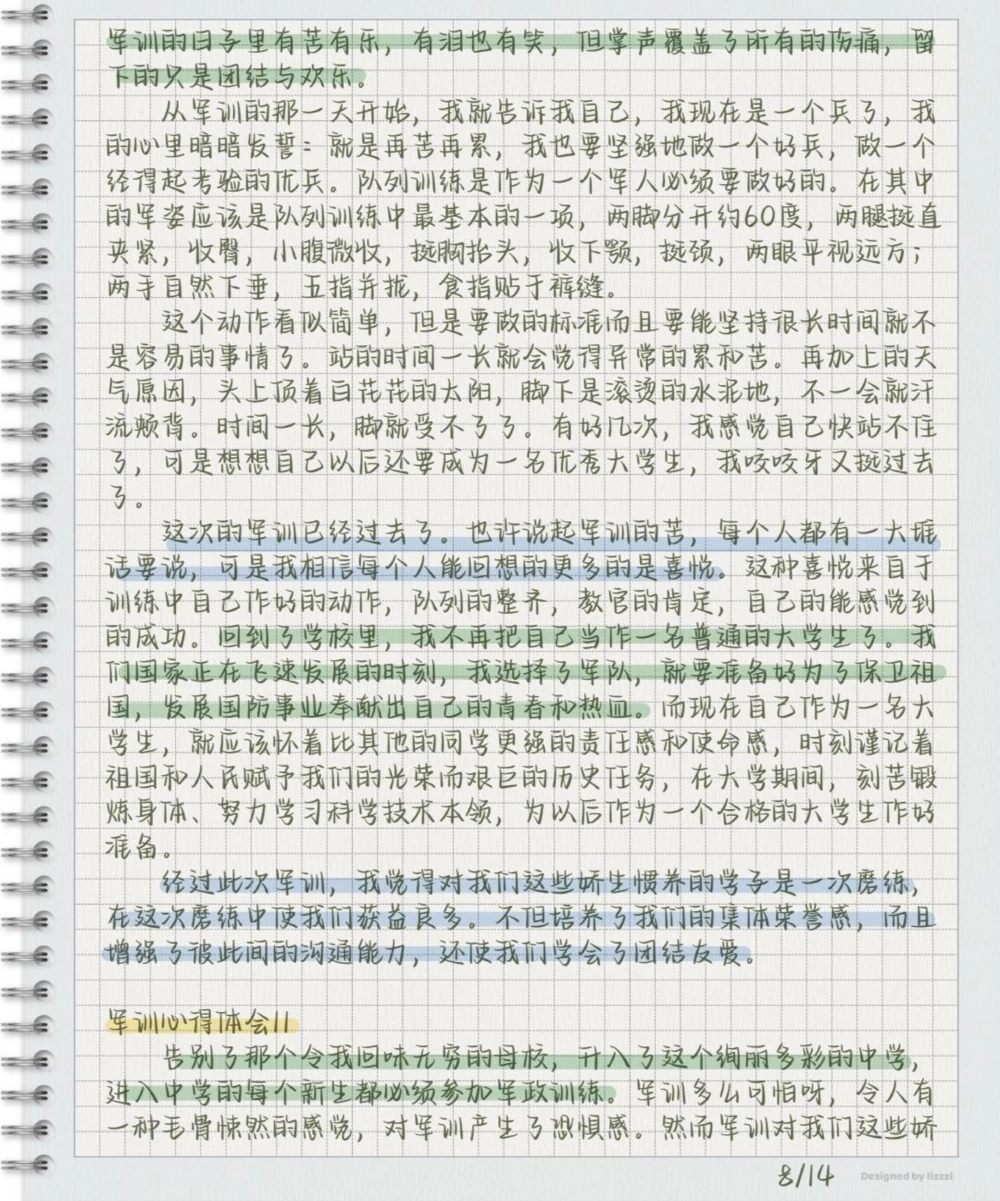 军训的日子里有苦有乐，有泪也有笑，但掌声覆盖了所有的伤痛，留
下的只是团结与欢乐。
从军训的那一天开始，我就告诉我自己，我现在是一个兵了，我
的心里暗暗发誓：就是再苦再累，我也要坚强地做一个好兵，做一个
经得起考验的优兵。队列训练是作为一个军人必须要做好的。在其中
的军姿应该是队列训练中最基本的一项，两脚分开约60度，两腿挺直
夹紧，收臀，小腹微收，挺胸抬头，收下颚，挺颈，两眼平视远方；
两手自然下垂，五指并拢，食指贴于裤缝。
这个动作看似简单，但是要做的标准而且要能坚持很长时间就不
是容易的事情了。站的时间一长就会觉得异常的累和苦。再加上的天
气原因，头上顶着白花花的太阳，脚下是滚烫的水泥地，不一会就汗
流颊背。时间一长，脚就受不了了。有好几次，我感觉自己快站不住
了，可是想想自己以后还要成为一名优秀大学生，我咬咬牙又挺过去
了。
这次的军训已经过去了。也许说起军训的苦，每个人都有一大堆
话要说，可是我相信每个人能回想的更多的是喜悦。这种喜悦来自于
训练中自己作好的动作，队列的整齐，教官的肯定，自己的能感觉到
的成功。回到了学校里，我不再把自己当作一名普通的大学生了。我
们国家正在飞速发展的时刻，我选择了军队，就要准备好为了保卫祖
国，发展国防事业奉献出自己的青春和热血。而现在自己作为一名大
学生，就应该怀着比其他的同学更强的责任感和使命感，时刻谨记着
祖国和人民赋予我们的光荣而艰巨的历史任务，在大学期间，刻苦锻
炼身体、努力学习科学技术本领，为以后作为一个合格的大学生作好
准备。
经过此次军训，我觉得对我们这些娇生惯养的学子是一次磨练，
在这次磨练中使我们获益良多。不但培养了我们的集体荣誉感，而且
增强了彼此间的沟通能力，还使我们学会了团结友爱。
军训心得体会11
告别了那个令我回味无穷的母校，升入了这个绚丽多彩的中学，
进入中学的每个新生都必须参加军政训练。军训多么可怕呀，令人有
一种毛骨悚然的感觉，对军训产生了恐惧感。然而军训对我们这些娇
8/14
Designed by lizzzi